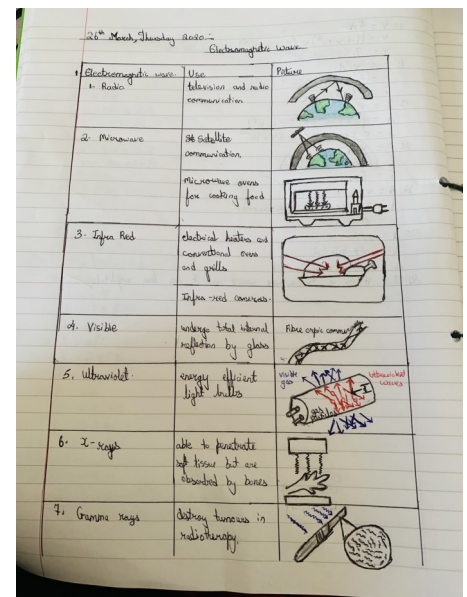 26th March, Thursday 2020 :-
Electromagnetic wave
Electromagnetic wave
Use
Picture
1. Radio
television and radio
communication
2. Microwave
Satellite
communication.
microwave ovens
for cooking food
3. Infra Red
electrical heaters and
conventional ovens
and grills
Infra-red cameras.
4. Visible
undergo total internal
reflection by glass
Fibre
5. Ultraviolet
energy efficient
light bulbs
visible
Ultraviolet
waves
6. X-rays
able to penetrate
soft tissue but are
absorbed by bones
7. Gamma rays
destroy tumours in
radiotherapy.